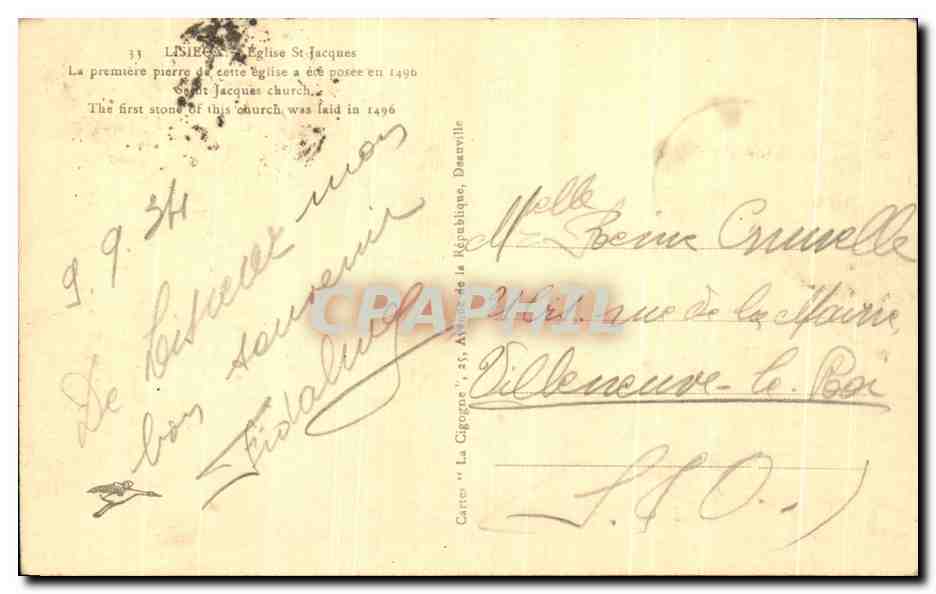 33 LISIEUX - Église St-Jacques
La première pierre de cette église a été posée en 1496
Saint Jacques church.
The first stone of this church was laid in 1496
9.9.34
De Lisieux mon
bon souvenir
Cartes " La Cigogne ", 25, Avenue de la République, Deauville
CPAPHIL
Melle Reine
rue de la Mairie,
Villeneuve-le-Roi
S.&O.